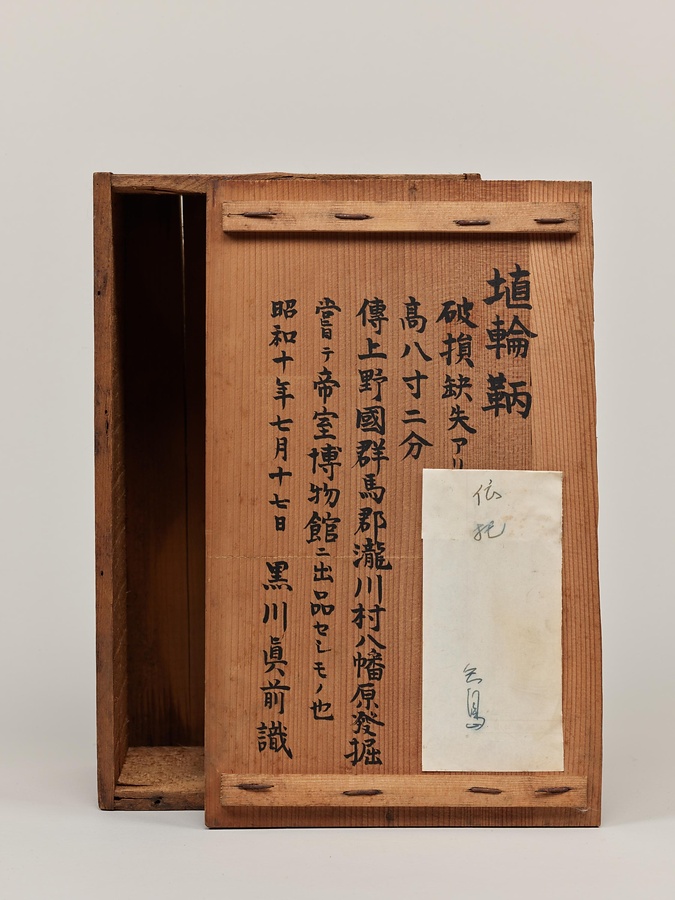 埴輪鞆
破損缺失アリ
高八寸二分
傳上野國群馬郡瀧川村八幡原發掘
嘗テ帝室博物館ニ出品セシモノ也
昭和十年七月十七日 黒川眞前識
依托